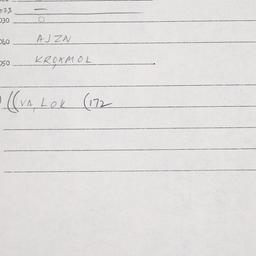 030
060 AJZN
050 KROKMOL
((VA, LOK (172